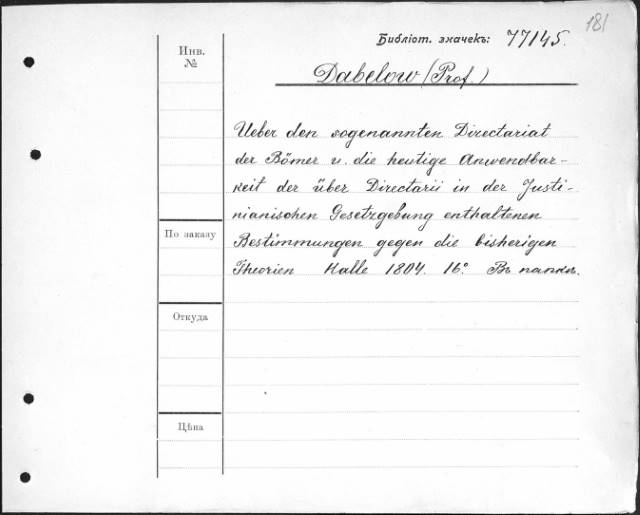 181
Библіот. значекъ: 77145.
Инв.
№
Dabelow (Prof.)
Ueber den sogenannten Directariat
der Bömer u. die heutige Anwendbar-
keit der über Directarii in der Justi-
nianischen Gesetzgebung enthaltenen
По заказу
Bestimmungen gegen die bisherigen
Theorien Halle 1804. 16º. Въ папкѣ.
Откуда
Цѣна